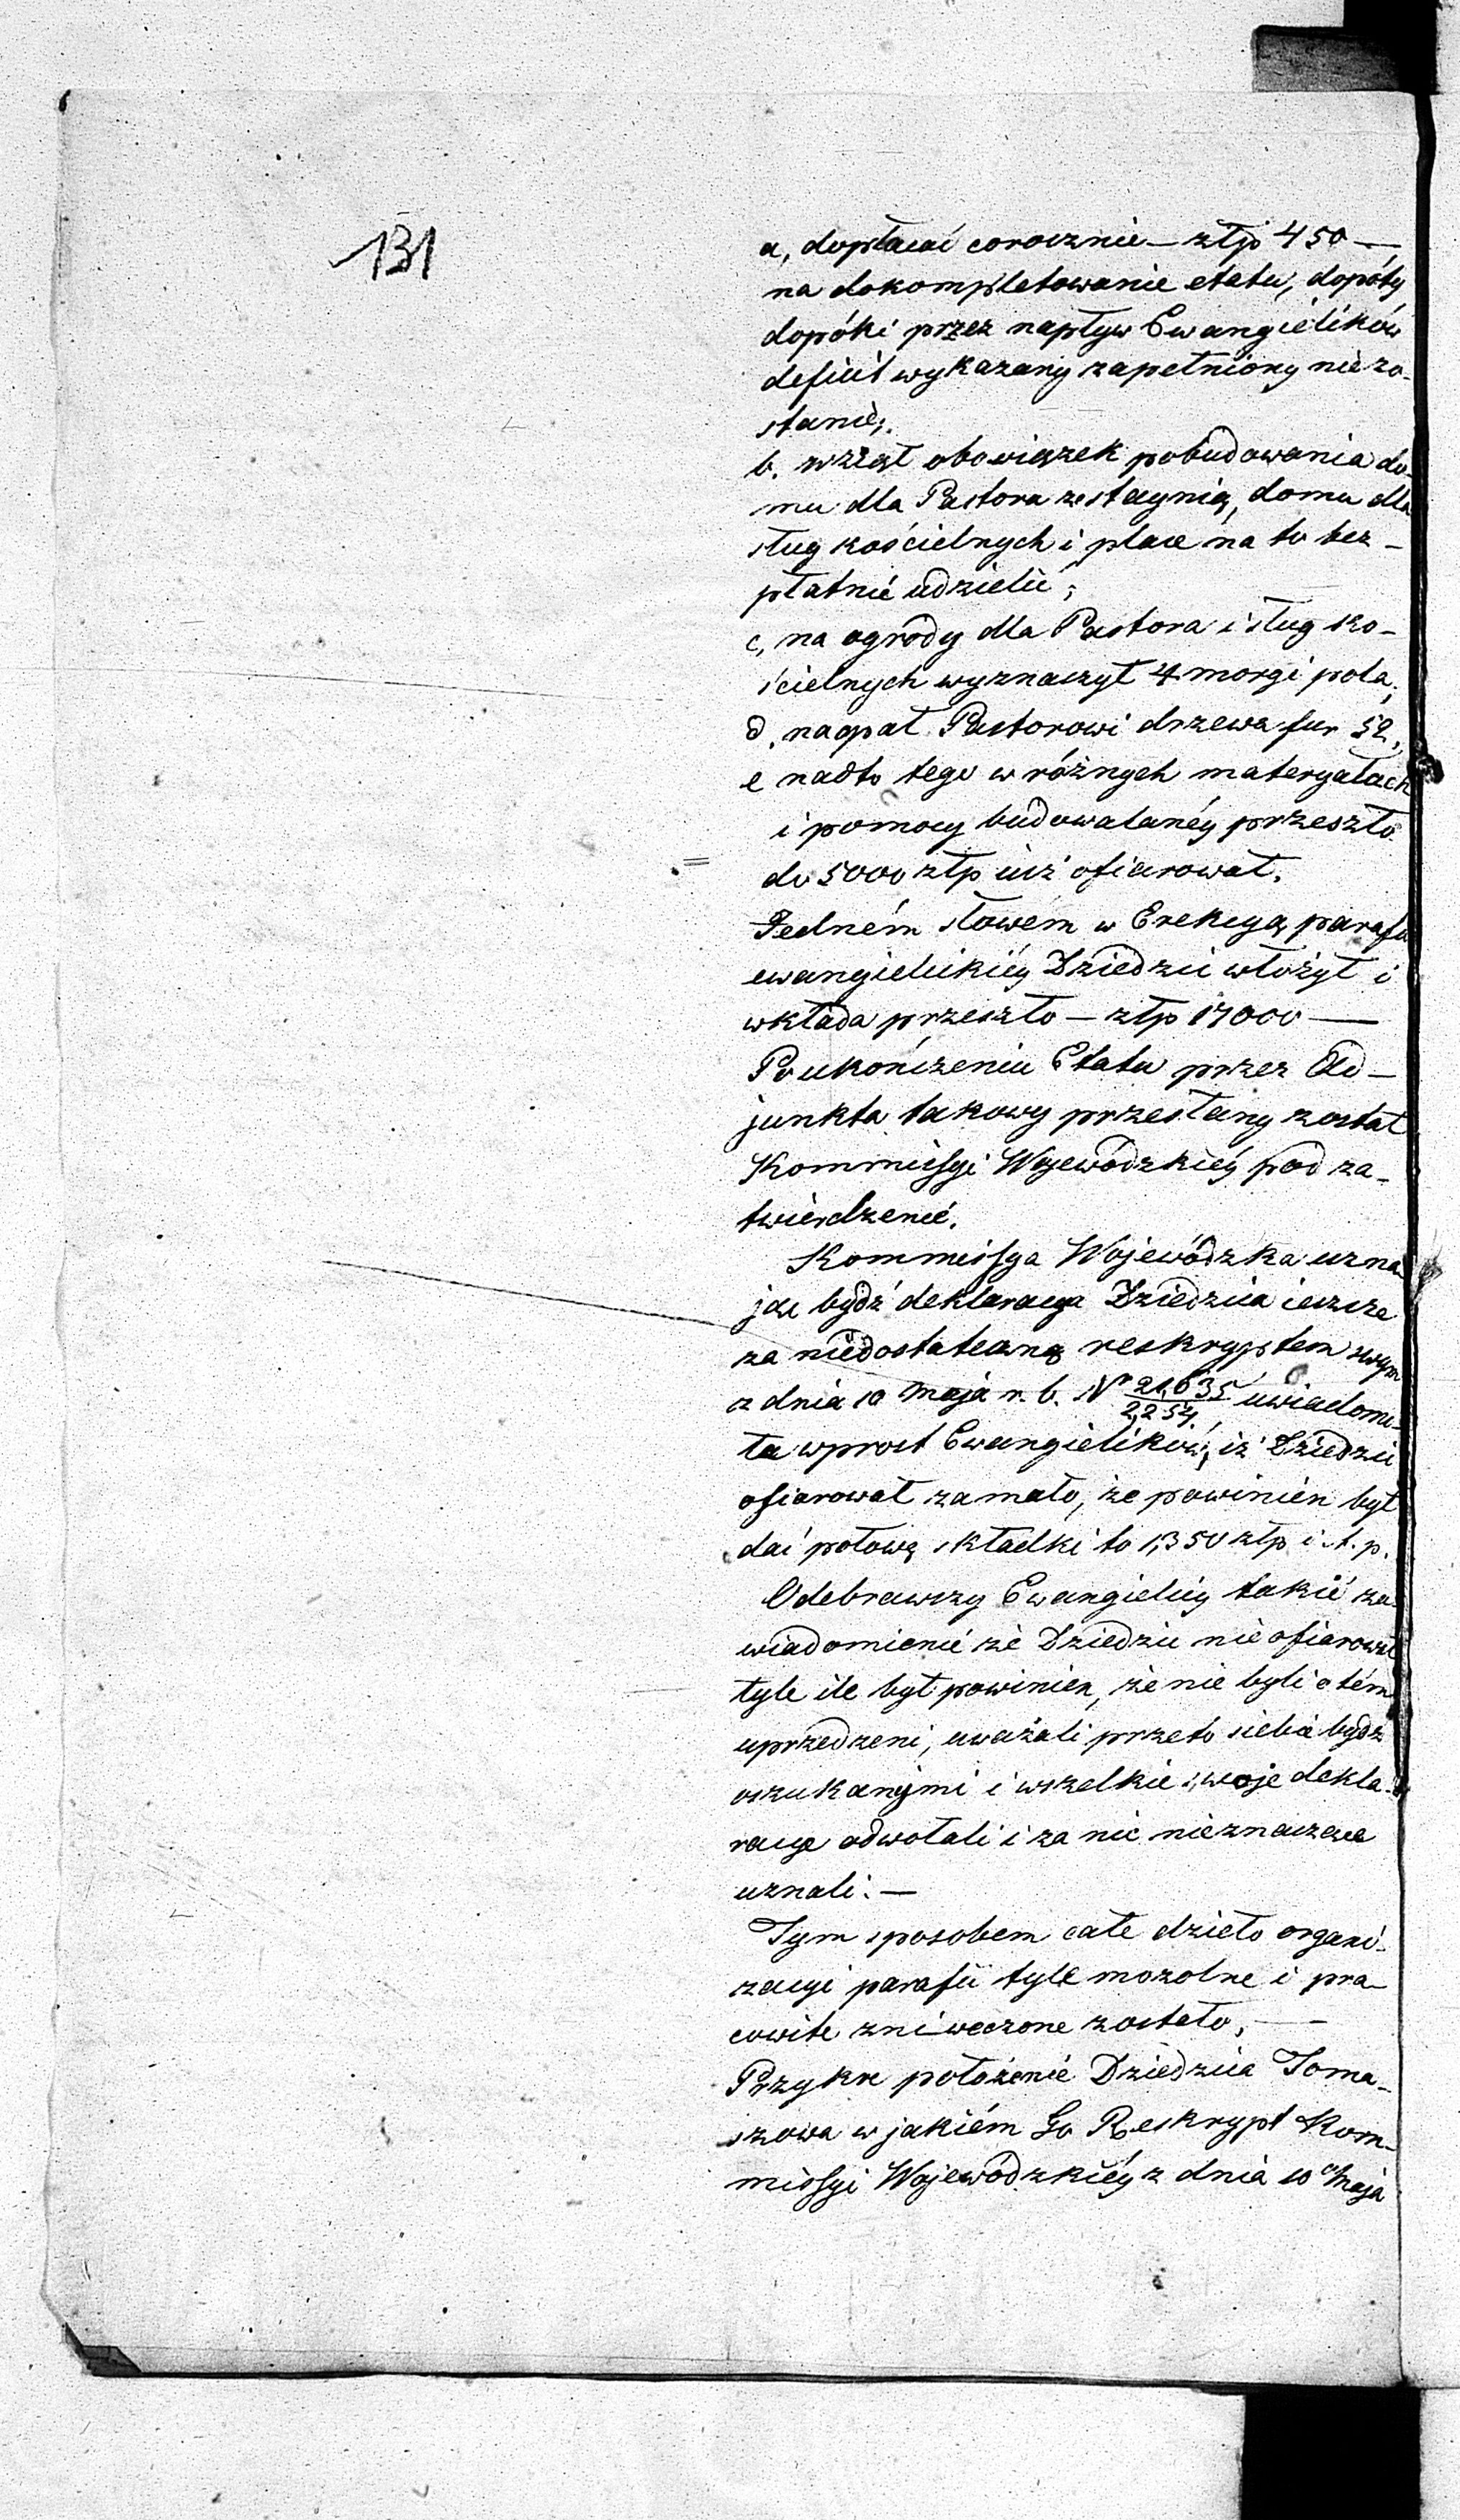 131
a, dopłacać corocznie — złp 450 —
na dokompletowanie etatu, dopóty
dopóki przez napływ Ewangielików
deficit wykazany zapełniony nie zo-
stanie;
b. wziął obowiązek pobudowania do-
mu dla Pastora ze staynią, domu dla
sług kościelnych i place na to bez-
płatnie udzielić;
c, na ogrody dla Pastora i sług ko-
ścielnych wyznaczył 4 morgi pola;
d. na opał Pastorowi drzewa fur 52,
e nadto tego w różnych materyałach
i pomocy budowalanéy przeszło
do 5000 złp iuż ofiarował.
Jedném słowem w Erekcyą parafii
ewangielickiéy Dziedzic włożył i
wkłada przeszło — złp 17000 —
Po ukończeniu Etatu przez Ad-
junkta takowy przesłany został
Kommissyi Wojewódzkiéy pod za-
twierdzenie.
Kommissya Wojewódzka uzna-
jąc bydź deklaracya Dziedzica ieszcze
za niedostateczną reskryptem swym
z dnia 10 maja r. b. Nr 21,635/2,254 uwiadomi-
ła wprost Ewangielików, iż Dziedzic
ofiarował za mało, że powinien był
dać połowę składki to 1,350 złp i t. p.
Odebrawszy Ewangielicy takie za-
wiadomienie że Dziedzic nie ofiarował
tyle ile był powinien, że nie byli o tém
uprzedzeni, uważali przeto siebie bydź
oszukanymi i wszelkie swoje dekla-
racye odwołali i za nic nieznaczące
uznali. —
Tym sposobem całe dzieło organi-
zacyi parafii tyle mozolne i pra-
cowite zniweczone zostało, —
Przykre położenie Dziedzica Toma-
szowa w jakiém Go Reskrypt Kom-
missyi Wojewódzkiéy z dnia 10 Maja